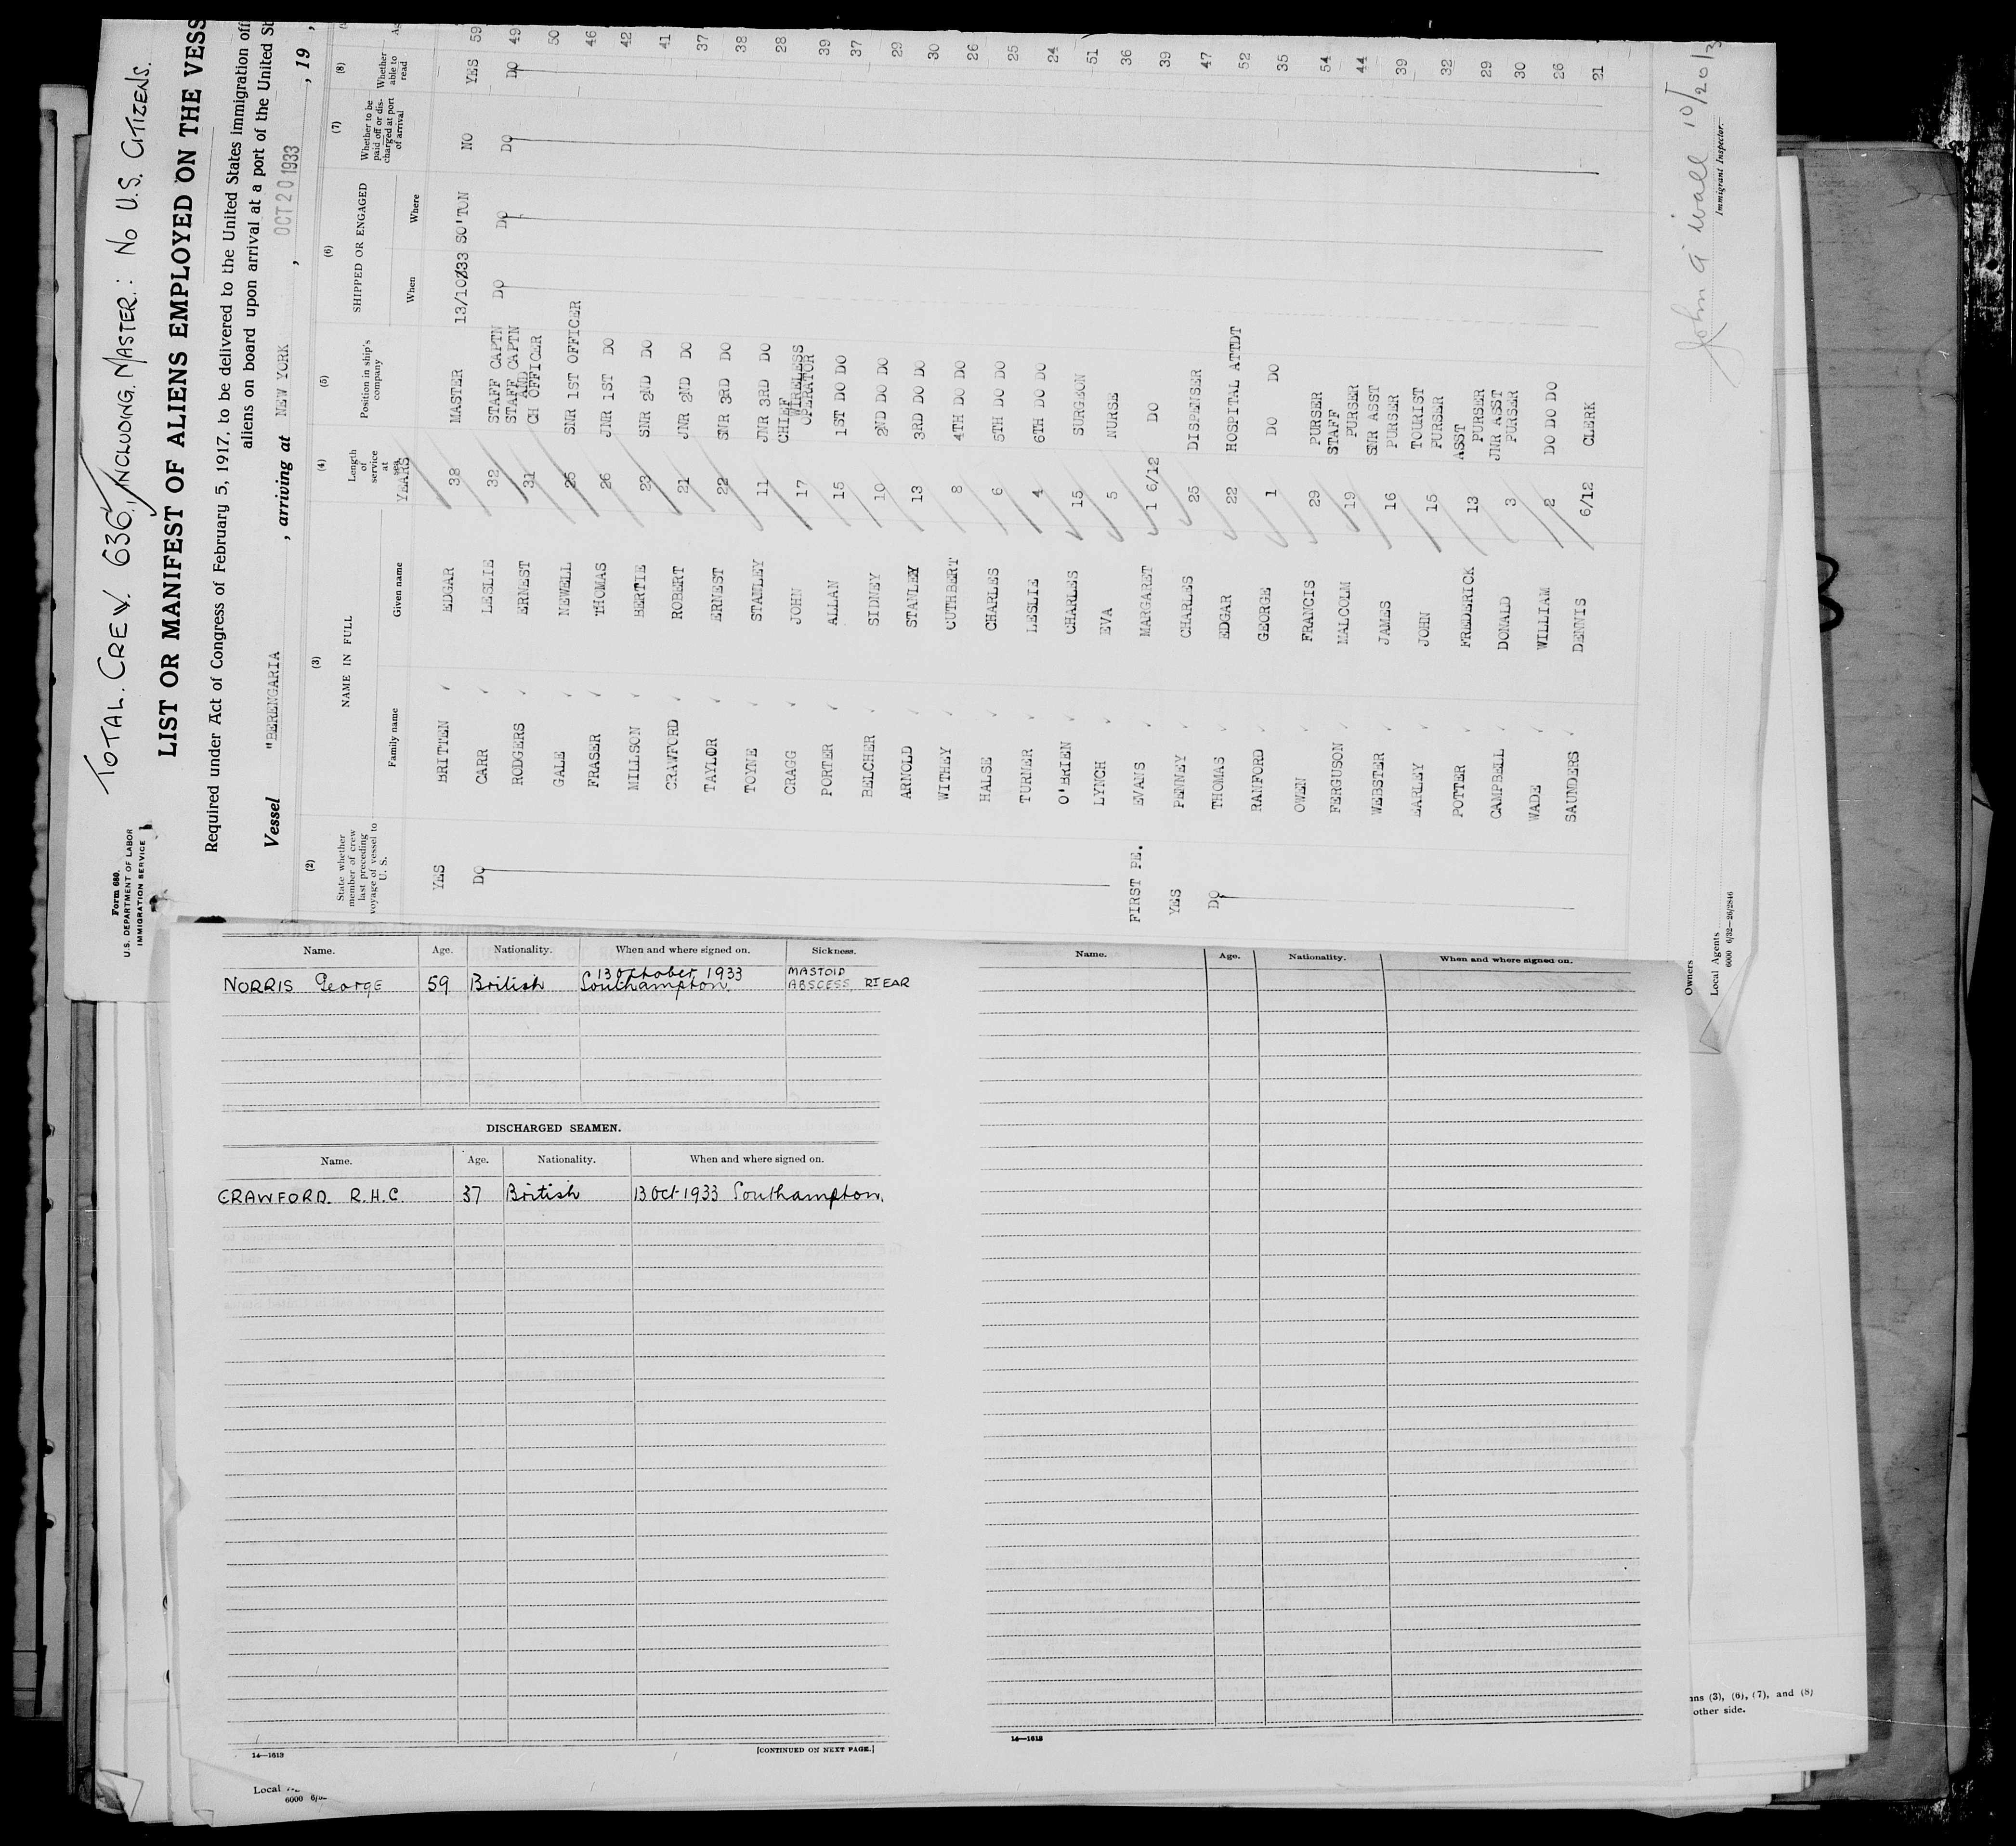 TOTAL. CREW. 636, INCLUDING, MASTER.: NO U.S. CITIZENS.
Form 680.
U.S. DEPARTMENT OF LABOR
IMMIGRATION SERVICE
LIST OR MANIFEST OF ALIENS EMPLOYED ON THE VESS
Required under Act of Congress of February 5, 1917, to be delivered to the United States immigration off
aliens on board upon arrival at a port of the United St
Vessel "BERENGARIA , arriving at NEW YORK , OCT 20 1933 , 19 ,
(2) (3) (4) (5) (6) (7) (8)
State whether member of crew last preceding voyage of vessel to U. S.
NAME IN FULL
Family name Given name
Length of service at sea YEARS
Position in ship's company
SHIPPED OR ENGAGED
When Where
Whether to be paid off or discharged at port of arrival
Whether able to read
YES BRITTEN EDGAR 38 MASTER 13/10/33 SO'TON NO YES 59
DO CARR LESLIE 32 STAFF CAPTN DO DO DO DO 49
RODGERS ERNEST 31 STAFF CAPTN AND CH OFFICER 50
GALE NEWELL 25 SNR 1ST OFFICER 46
FRASER THOMAS 26 JNR 1ST DO 42
MILLSON BERTIE 23 SNR 2ND DO 41
CRAWFORD ROBERT 21 JNR 2ND DO 37
TAYLOR ERNEST 22 SNR 3RD DO 38
TOYNE STANLEY 11 JNR 3RD DO 28
CRAGG JOHN 17 CHIEF WIRELESS OPERATOR 39
PORTER ALLAN 15 1ST DO DO 37
BELCHER SIDNEY 10 2ND DO DO 29
ARNOLD STANLEY 13 3RD DO DO 30
WITHEY CUTHBERT 8 4TH DO DO 26
HALSE CHARLES 6 5TH DO DO 25
TURNER LESLIE 4 6TH DO DO 24
O'BRIEN CHARLES 15 SURGEON 51
LYNCH EVA 5 NURSE 36
FIRST PE. EVANS MARGARET 1 6/12 DO 39
YES PENNEY CHARLES 25 DISPENSER 47
DO THOMAS EDGAR 22 HOSPITAL ATTDT 52
RANFORD GEORGE 1 DO DO 35
OWEN FRANCIS 29 PURSER 54
FERGUSON MALCOLM 19 STAFF PURSER 44
WEBSTER JAMES 16 SNR ASST PURSER 39
EARLEY JOHN 15 TOURIST PURSER 32
POTTER FREDERICK 13 ASST PURSER 29
CAMPBELL DONALD 3 JNR ASST PURSER 30
WADE WILLIAM 2 DO DO DO 26
SAUNDERS DENNIS 6/12 CLERK 21
John 10/20/3
Immigrant Inspector.
Owners
Local Agents
6000 6/32—26/2846
Name. Age. Nationality. When and where signed on. Sickness.
NORRIS George 59 British 13 October, 1933 Southampton. MASTOID ABSCESS, RT EAR
DISCHARGED SEAMEN.
Name. Age. Nationality. When and where signed on.
CRAWFORD. R.H.C. 37 British 13 Oct 1933 Southampton.
14—1613
[CONTINUED ON NEXT PAGE.]
Name. Age. Nationality. When and where signed on.
14—1613
Local
6000
ns (3), (6), (7), and (8)
other side.